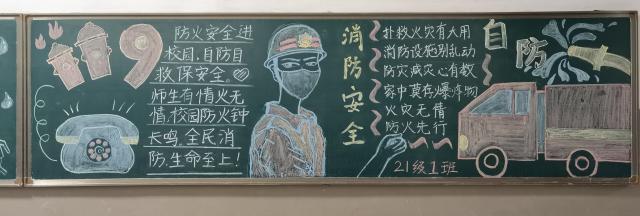 119
防火安全进
校园，自防自
救保安全。
师生有情火无
情，校园防火钟
长鸣，全民消
防，生命至上！
消防安全
扑救火灾有大用
消防设施别乱动
防灾减灾心有数
室中莫存爆炸物
火灾无情
防火先行
21级1班
自防